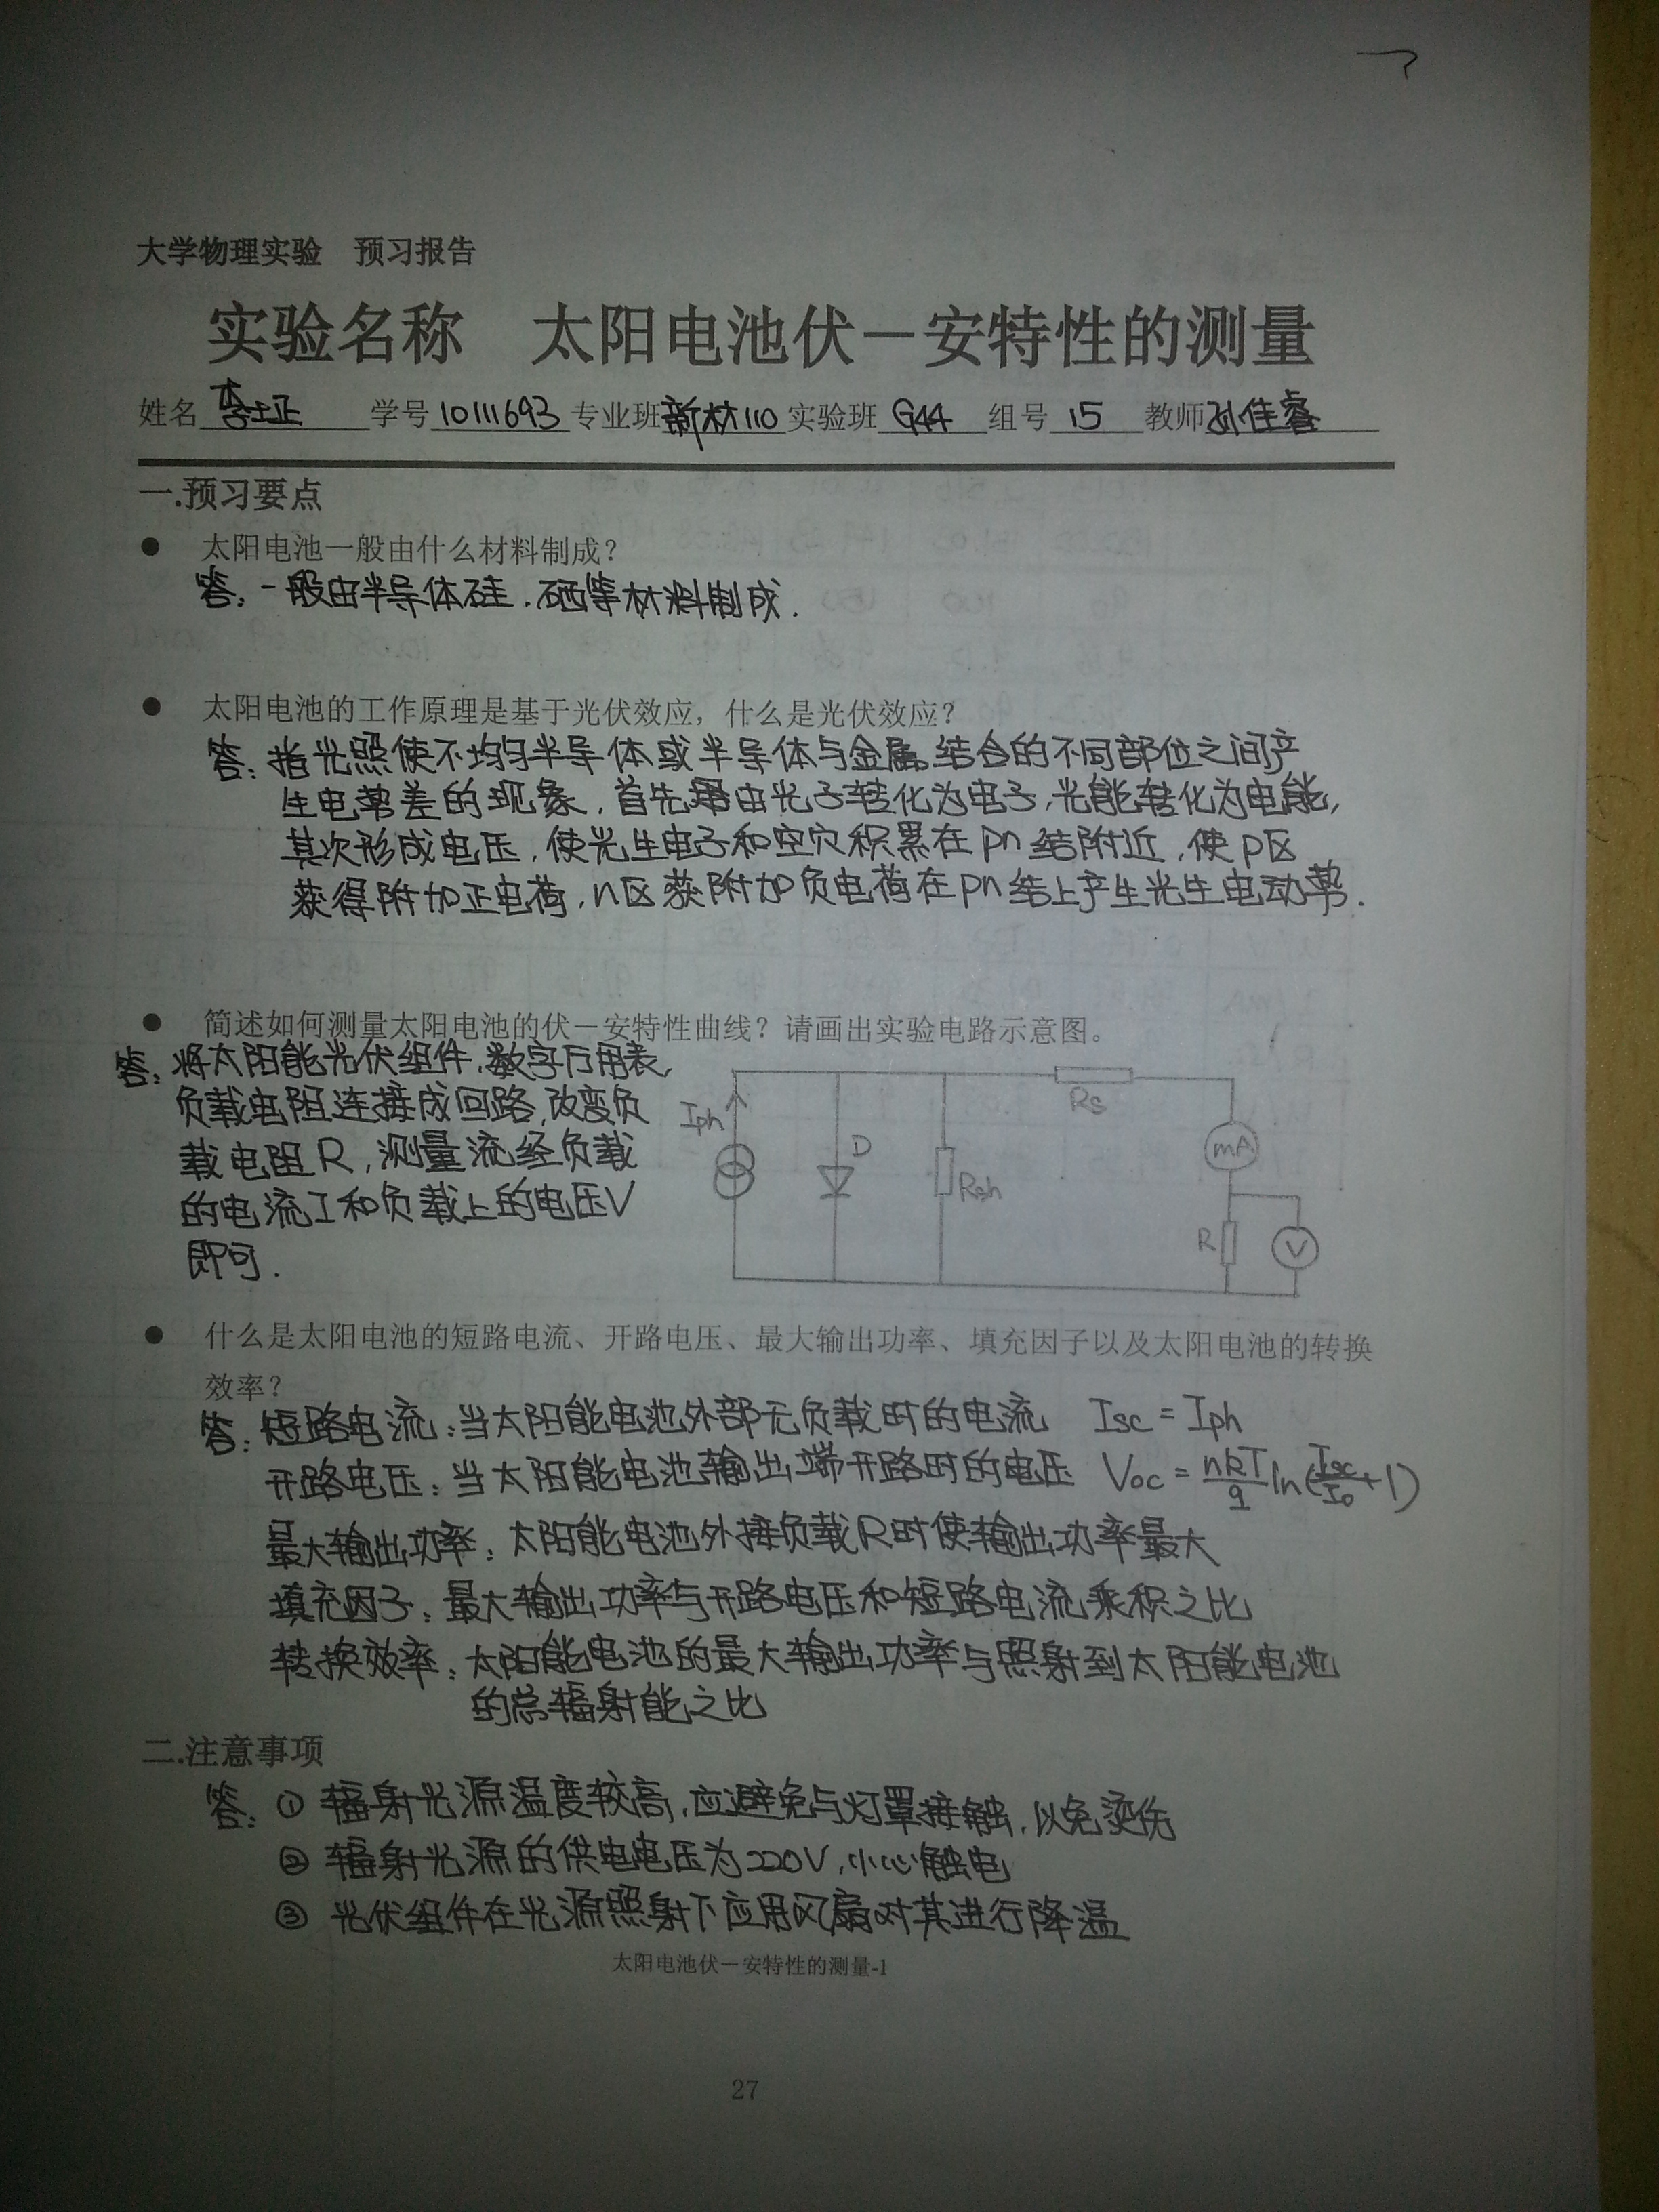 大学物理实验　预习报告
实验名称　太阳电池伏－安特性的测量
姓名 李士正 学号 10111693 专业班 新材110 实验班 G44 组号 15 教师 孙佳睿
一.预习要点
● 太阳电池一般由什么材料制成？
答：一般由半导体硅．硒等材料制成．
● 太阳电池的工作原理是基于光伏效应，什么是光伏效应？
答：指光照使不均匀半导体或半导体与金属结合的不同部位之间产
生电势差的现象．首先是由光子转化为电子，光能转化为电能，
其次形成电压，使光生电子和空穴积累在pn结附近，使p区
获得附加正电荷，n区获附加负电荷在pn结上产生光生电动势．
● 简述如何测量太阳电池的伏－安特性曲线？请画出实验电路示意图。
答：将太阳能光伏组件，数字万用表，
负载电阻连接成回路，改变负
载电阻R，测量流经负载
的电流I和负载上的电压V
即可．
Iph
D
Rsh
Rs
mA
R
V
● 什么是太阳电池的短路电流、开路电压、最大输出功率、填充因子以及太阳电池的转换
效率？
答：短路电流：当太阳能电池外部无负载时的电流 Isc = Iph
开路电压：当太阳能电池输出端开路时的电压 Voc = nkT/q ln(Isc/I0+1)
最大输出功率：太阳能电池外接负载R时使输出功率最大
填充因子：最大输出功率与开路电压和短路电流乘积之比
转换效率：太阳能电池的最大输出功率与照射到太阳能电池
的总辐射能之比
二.注意事项
答：① 辐射光源温度较高，应避免与灯罩接触，以免烫伤
② 辐射光源的供电电压为220V，小心触电
③ 光伏组件在光源照射下应用风扇对其进行降温
太阳电池伏－安特性的测量-1
27